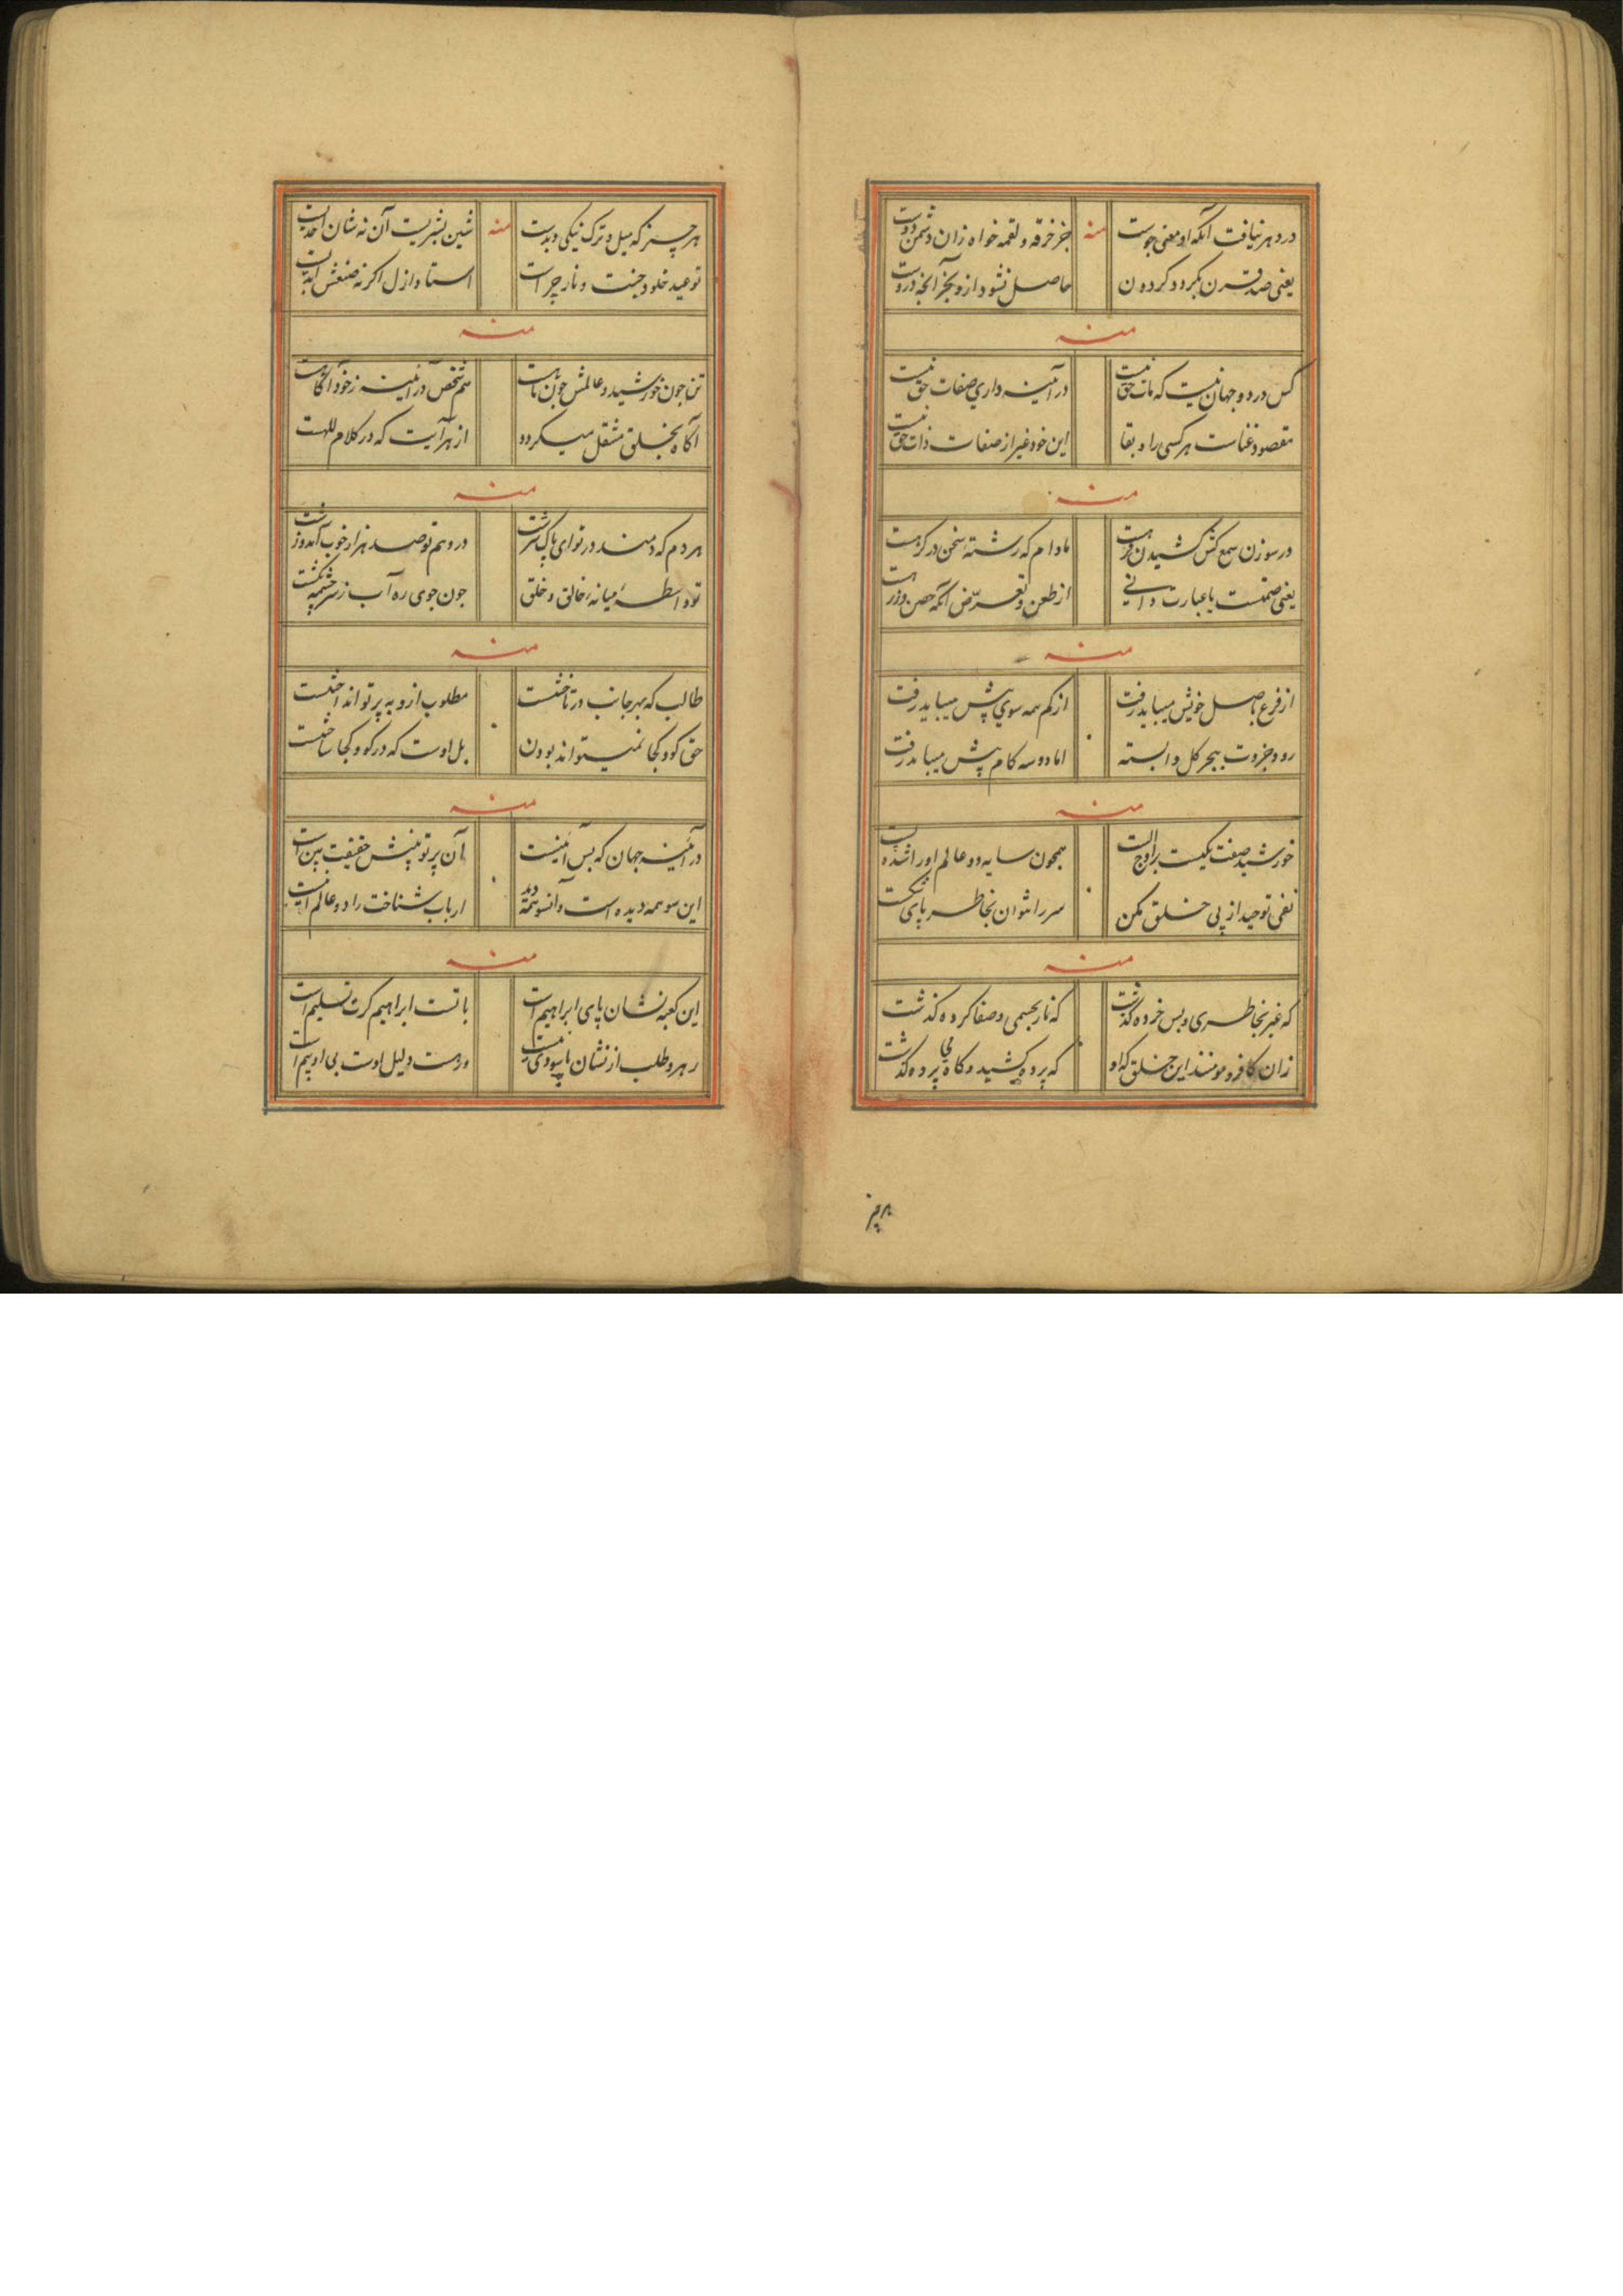 در دهر نیافت آنکه او معنی جوست منه جز خرقه و لقمه خواه زان دشمن دوست
یعنی صد قرن بگردد گردون حاصل نشود ازو بجز آنچه دروست
منه
کس در دو جهان نیست که مات حق نیست در آینه داری صفات حق نیست
مقصود غناست هر کسی را و بقا این خود غیر از صفات ذات حق نیست
منه
در سوزن سمع کش کشیدن مادام که رشتهٔ سخن در گرهست
یعنی با عبارت دانی از طعن و تعرّض آنکه
منه
از فرع باصل خویش میباید رفت از کم همه سوی پیش میباید رفت
رو جزوت ببحر کل وابسته اما دو سه گام پیش میباید رفت
منه
خورشید صفت یکیست همچون سایه دو عالم او را
نفی توحید از پی خلق مکن سر را نتوان بخاطر پای شکست
منه
که غیر بخاطری و بس خرده گذشت که نار بجسمی و صفا کرده گذشت
زان کافر و مومنند این خلق که او که پرده کشید و گاه بی پرده گذشت
هر چیز که میل و ترک نیکی و بدست منه شین بشریت آن نه شان احدیست
توعید خلود جنت و نار چراست استاد ازل اگر نه صنعش ابدیست
منه
تن چون خورشید و عالمش چون ماهست هم شخص در آئینه ز خود آگاهست
آگاه بخلق منتقل میگردد از هر آیت که در کلام للهست
منه
هر دم که دمند در تو ای پاک سرشت در وهم تو صد هزار خوب آمد و زشت
تو واسطهٔ میانهٔ خالق و خلق چون جوی ره آب ز سرچشمه بکشت
منه
طالب که بهر جانب در تاختست مطلوب ازو به پرتو انداختست
حق کو و کجا نمیتواند بودن بل اوست که در کو و کجا ساختست
منه
در آئینه جهان که بس آئینست آن پرتو بینش حقیقت بین است
این سو همه دیده است و آنسو همه دید ارباب شناخت را دو عالم اینست
منه
این کعبه نشان پای ابراهیم است با تست ابراهیم گرت تسلیم است
رهرو طلب از نشان پا وردست دلیل اوست بی او بیم است